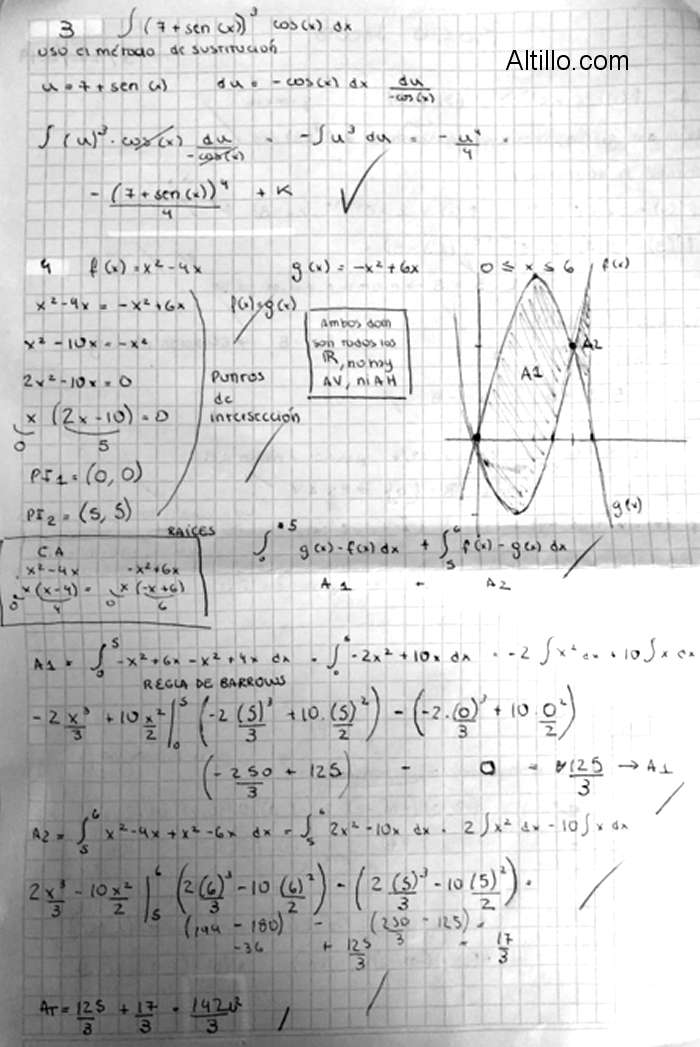 3 ∫ (7+sen(x))³ cos(x) dx
Altillo.com
uso el método de sustitución
u = 7 + sen(x) du = -cos(x) dx du/-cos(x)
∫ (u)³ · cos(x) du/-cos(x) = -∫u³ du = -u⁴/4 =
-(7+sen(x))⁴/4 + K ✓
4 f(x) = x²-4x g(x) = -x²+6x 0 ≤ x ≤ 6 f(x)
x²-4x = -x²+6x f(x)=g(x)
x²-10x = -x²
2x²-10x = 0
x (2x-10) = 0
0 5
PI₁ = (0, 0)
PI₂ = (5, 5)
Puntos
de
intersección
Ambos dom
son todos los
ℝ, no hay
AV, ni AH
A1
A2
g(x)
RAÍCES
C.A
x²-4x -x²+6x
x(x-4) = x(-x+6)
0 4 0 6
∫₀⁵ g(x)-f(x) dx + ∫₅⁶ f(x)-g(x) dx
A1 - A2
A1 = ∫₀⁵ -x²+6x-x²+4x dx = ∫₀⁶ -2x²+10x dx = -2∫x² dx + 10∫x dx
REGLA DE BARROWS
-2x³/3 + 10x²/2 |₀⁵ (-2(5)³/3 + 10.(5)²/2) - (-2.(0)³/3 + 10.0²/2)
(-250/3 + 125) - 0 = 125/3 → A1
A2 = ∫₅⁶ x²-4x+x²-6x dx = ∫₅⁶ 2x²-10x dx = 2∫x² dx - 10∫x dx
2x³/3 - 10x²/2 |₅⁶ (2(6)³/3 - 10(6)²/2) - (2(5)³/3 - 10(5)²/2) =
(144 - 180) - (250/3 - 125) =
-36 + 125/3 = 17/3
AT = 125/3 + 17/3 = 142/3 u²